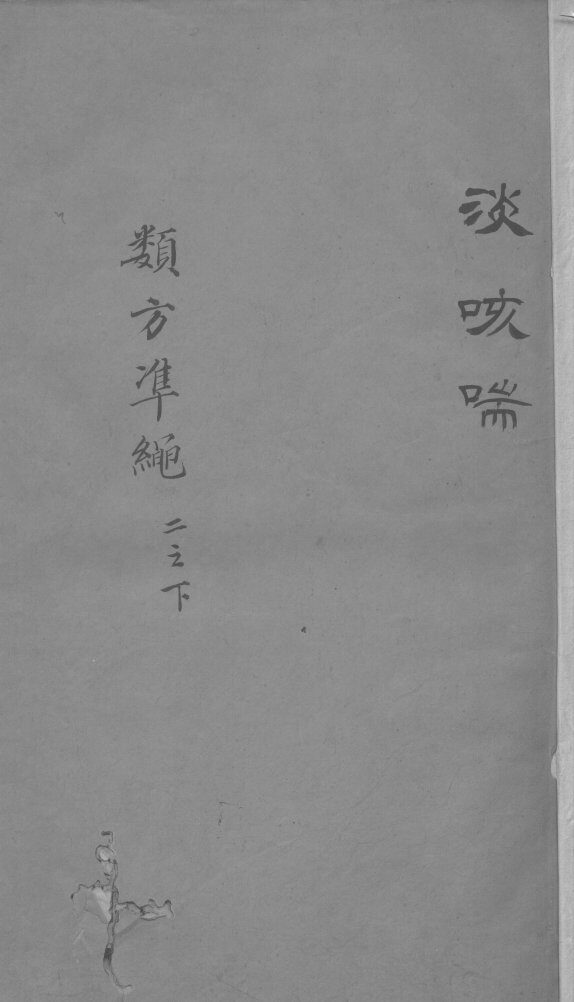 淡咳喘
類方準繩
二之下